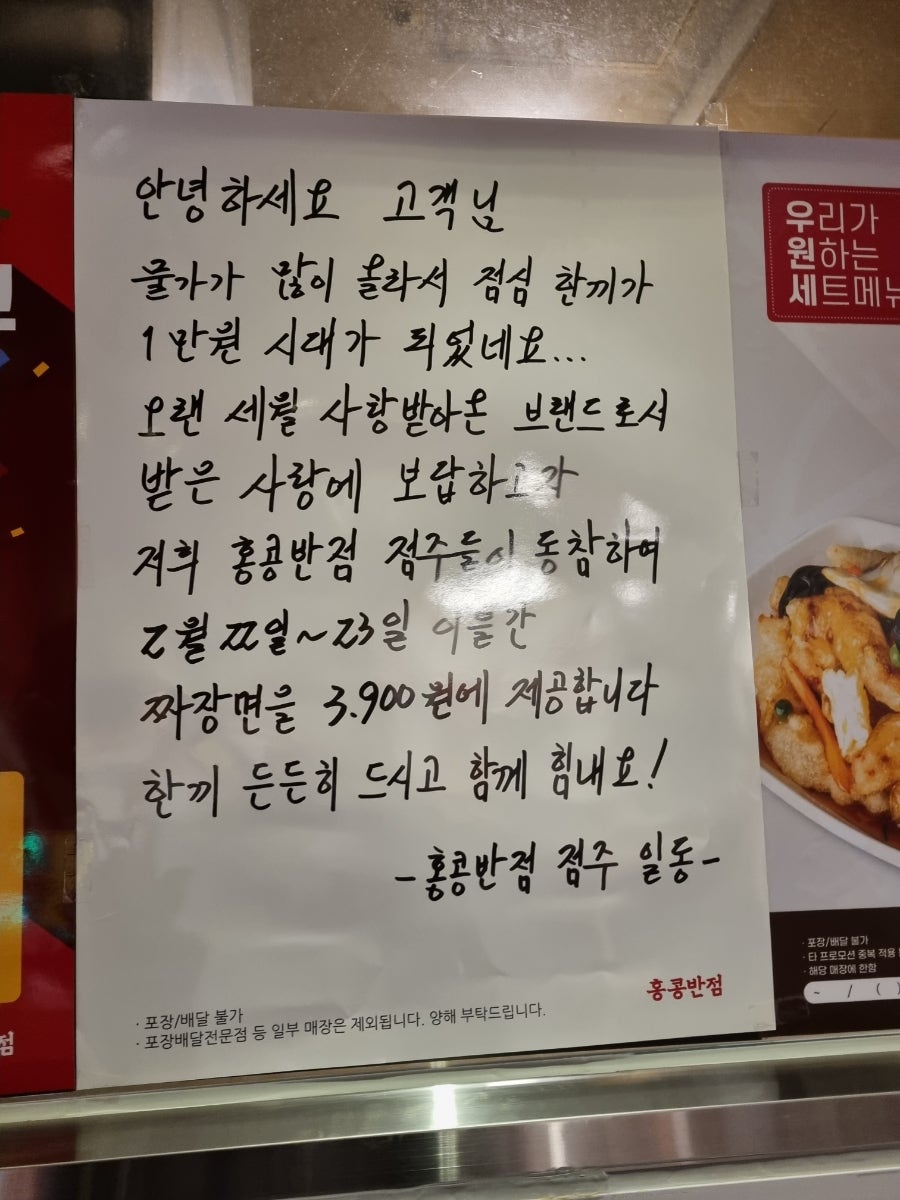 안녕하세요 고객님
물가가 많이 올라서 점심 한끼가
1만원 시대가 되었네요...
오랜 세월 사랑받아온 브랜드로서
받은 사랑에 보답하고자
저희 홍콩반점 점주들이 동참하여
2월 22일~23일 이틀간
짜장면을 3.900원에 제공합니다
한끼 든든히 드시고 함께 힘내요!
-홍콩반점 점주 일동-
홍콩반점
· 포장/배달 불가
· 포장배달전문점 등 일부 매장은 제외됩니다. 양해 부탁드립니다.
우리가
원하는
세트메뉴
· 포장/배달 불가
· 타 프로모션 중복 적용
· 해당 매장에 한함
~ / ( )
점